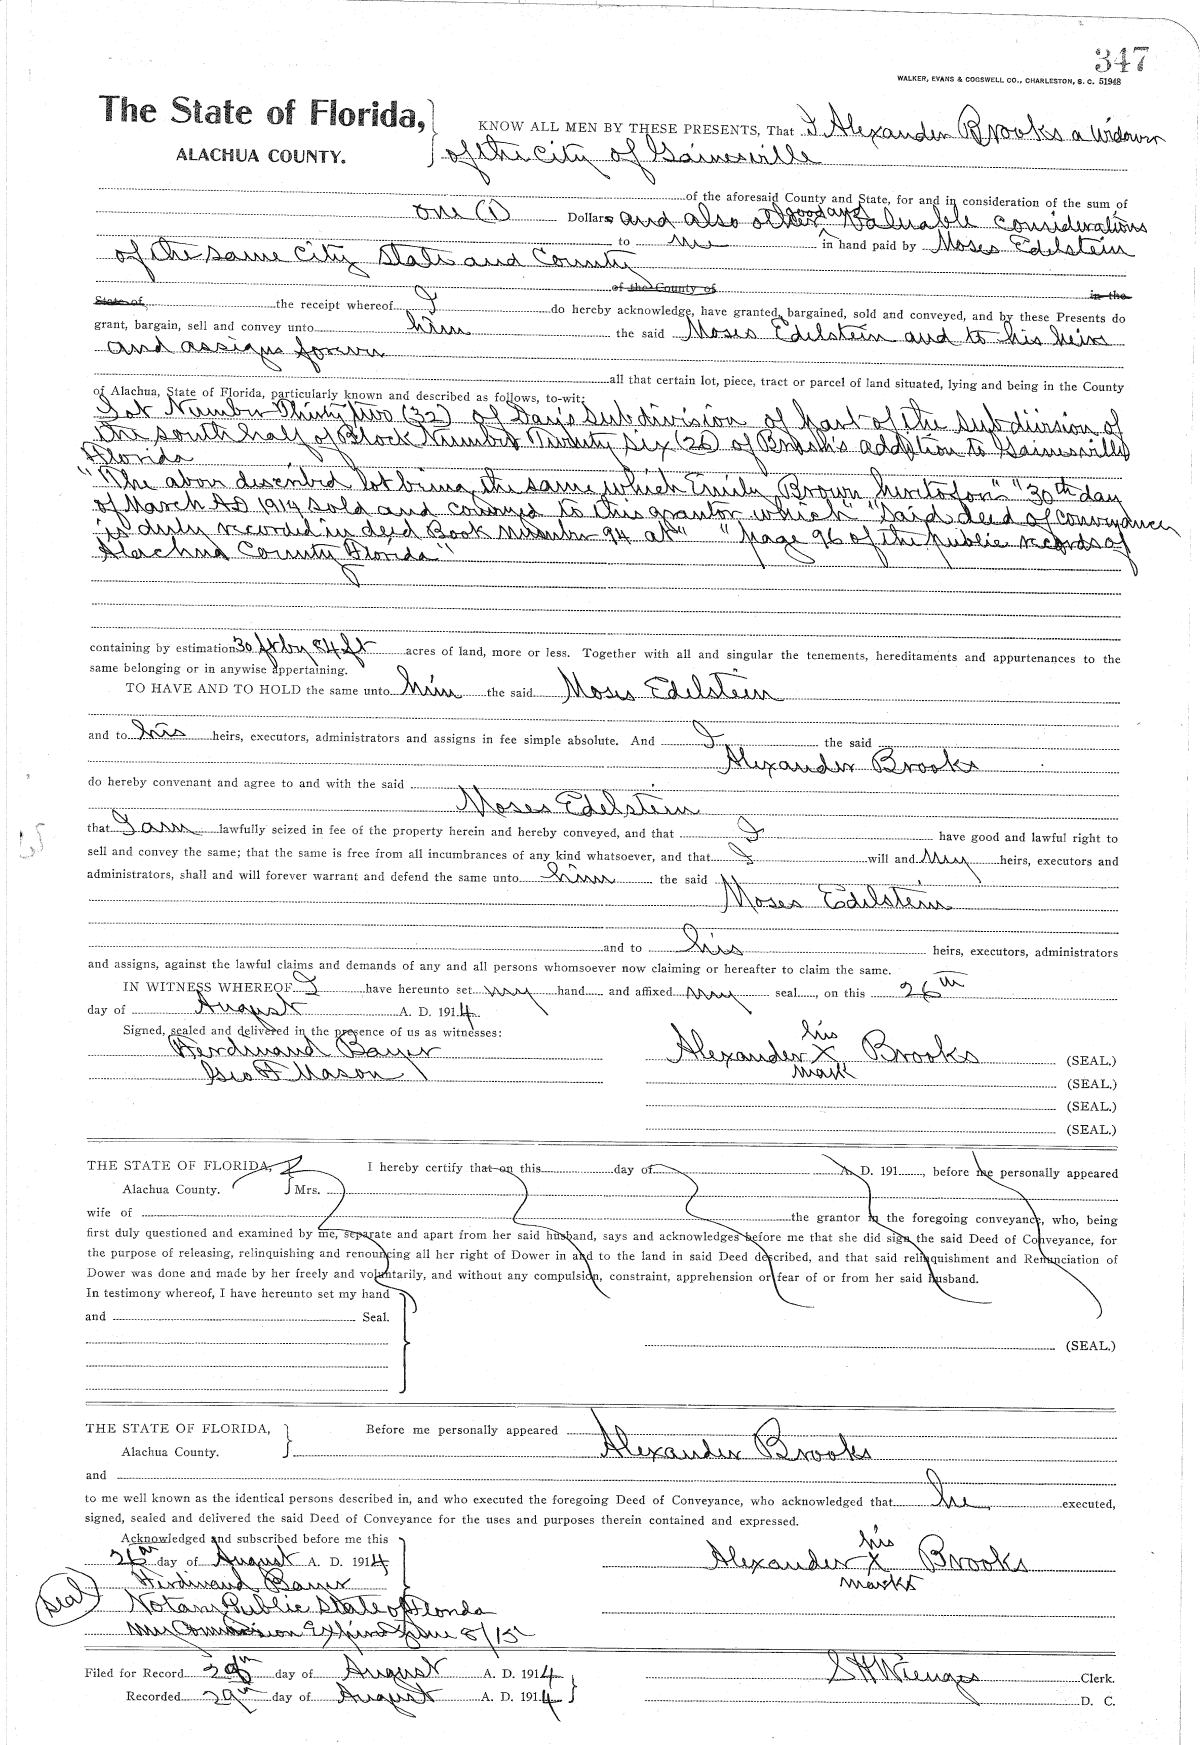 347
WALKER, EVANS & COGSWELL CO., CHARLESTON, S. C. 51948
The State of Florida,
ALACHUA COUNTY.
KNOW ALL MEN BY THESE PRESENTS, That I Alexander Brooks a widower
of the City of Gainesville
of the aforesaid County and State, for and in consideration of the sum of
one (1) Dollars and also other good and valuable considerations
to me in hand paid by Moses Edelstein
of the same City State and County
of the County of in the
State of, the receipt whereof I do hereby acknowledge, have granted, bargained, sold and conveyed, and by these Presents do
grant, bargain, sell and convey unto him the said Moses Edelstein and to his heirs
and assigns forever
all that certain lot, piece, tract or parcel of land situated, lying and being in the County
of Alachua, State of Florida, particularly known and described as follows, to-wit:
Lot Number Thirty two (32) of Day's Subdivision of part of the subdivision of
the south half of Block Number Twenty six (26) of Brush's addition to Gainesville
Florida
"The above described lot being the same which Emily Brown heretofore" "30th day
of March AD 1914 sold and conveyed to this grantor which" "Said deed of conveyance
is duly recorded in deed Book Number 94 at" "page 96 of the public records of
Alachua County Florida"
containing by estimation 30 ft by 84 ft acres of land, more or less. Together with all and singular the tenements, hereditaments and appurtenances to the
same belonging or in anywise appertaining.
TO HAVE AND TO HOLD the same unto him the said Moses Edelstein
and to his heirs, executors, administrators and assigns in fee simple absolute. And I the said
Alexander Brooks
do hereby convenant and agree to and with the said
Moses Edelstein
that I am lawfully seized in fee of the property herein and hereby conveyed, and that I have good and lawful right to
sell and convey the same; that the same is free from all incumbrances of any kind whatsoever, and that I will and my heirs, executors and
administrators, shall and will forever warrant and defend the same unto him the said
Moses Edelstein
and to his heirs, executors, administrators
and assigns, against the lawful claims and demands of any and all persons whomsoever now claiming or hereafter to claim the same.
IN WITNESS WHEREOF I have hereunto set my hand and affixed my seal, on this 26th
day of August A. D. 1914.
Signed, sealed and delivered in the presence of us as witnesses:
Ferdinand Bayer
Geo F Mason
his
Alexander X Brooks (SEAL.)
mark
(SEAL.)
(SEAL.)
(SEAL.)
THE STATE OF FLORIDA, I hereby certify that on this day of A. D. 191, before me personally appeared
Alachua County. Mrs.
wife of the grantor in the foregoing conveyance, who, being
first duly questioned and examined by me, separate and apart from her said husband, says and acknowledges before me that she did sign the said Deed of Conveyance, for
the purpose of releasing, relinquishing and renouncing all her right of Dower in and to the land in said Deed described, and that said relinquishment and Renunciation of
Dower was done and made by her freely and voluntarily, and without any compulsion, constraint, apprehension or fear of or from her said husband.
In testimony whereof, I have hereunto set my hand
and Seal.
(SEAL.)
THE STATE OF FLORIDA, Before me personally appeared
Alachua County. Alexander Brooks
and
to me well known as the identical persons described in, and who executed the foregoing Deed of Conveyance, who acknowledged that he executed,
signed, sealed and delivered the said Deed of Conveyance for the uses and purposes therein contained and expressed.
Acknowledged and subscribed before me this
26th day of August A. D. 1914
Ferdinand Bayer
Seal
Notary Public State of Florida
My Commission Expires June 8/15
his
Alexander X Brooks
marks
Filed for Record day of August A. D. 1914
S H Wienges Clerk.
Recorded 29th day of August A. D. 1914
D. C.